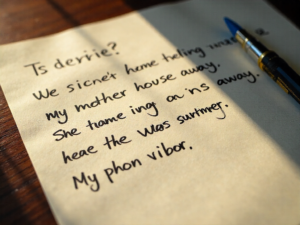 Ts derrie?
We sicnet heme tieling
my mother house away.
She tiame ing an'ns away.
heae the was surtmeg.
My phon vibor.